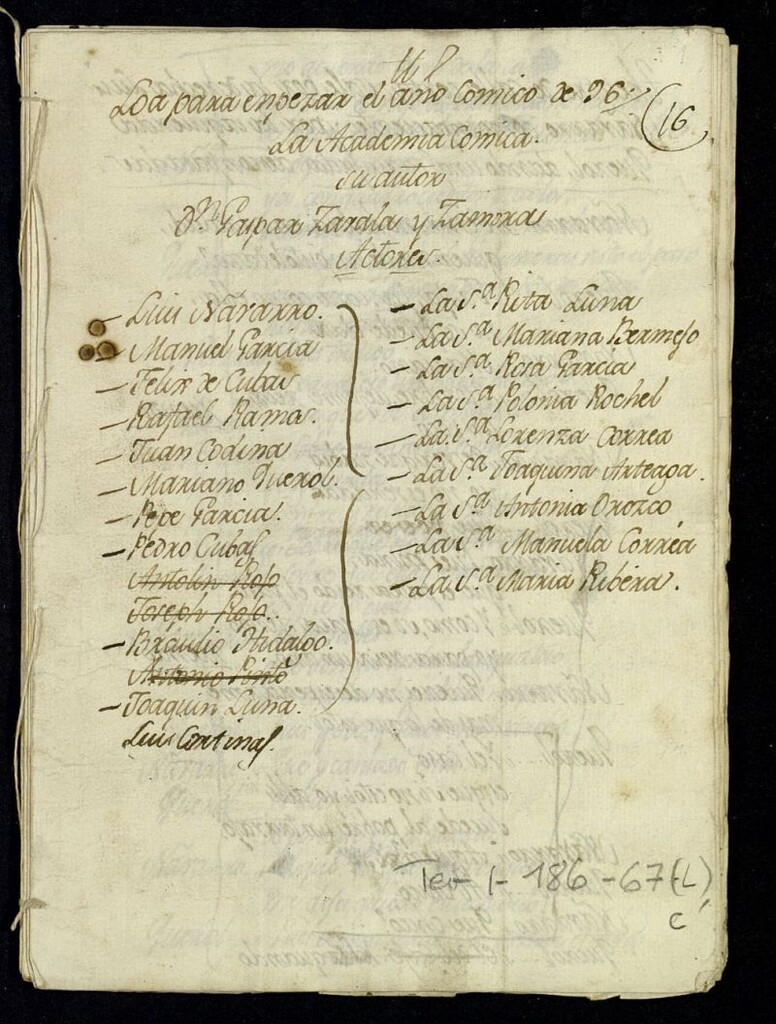 Loa para enpezar el año Comico de 96
16
La Academia Comica.
su autor
Dn. Gaspar Zavala y Zamora
Actores.
- Luis Navarro.
- Manuel Garcia
- Felix de Cubas
- Rafael Ramos.
- Juan Codina
- Mariano Querol.
- Pepe Garcia.
- Pedro Cubas
Antolin Rojo
Joseph Rojo.
- Braulio Hidalgo.
Antonio Pinto
- Joaquin Luna.
Luis Cortinas.
- La S.ª Rita Luna
- La S.ª Mariana Bermejo
- La S.ª Rosa Garcia
- La S.ª Polonia Rochel
- La S.ª Lorenza Correa
- La S.ª Joaquina Arteaga.
- La S.ª Antonia Orozco
- La S.ª Manuela Correa
- La S.ª Maria Ribera.
Tea - 1 - 186 - 67 (L)
C